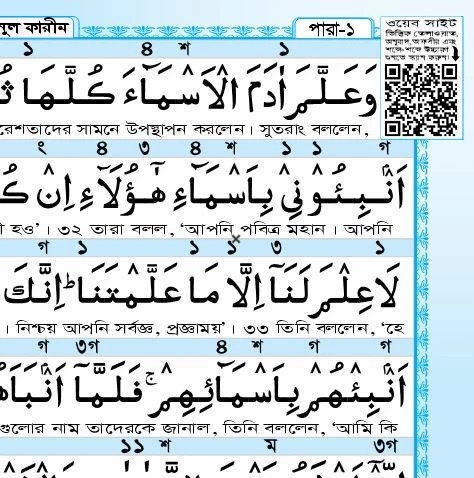 নুল কারীন পারা-১ ওয়েব সাইট
ভিত্তিক তেলাওয়াত,
১ ৪ শ ১
وَعَلَّمَ اٰدَمَ الْاَسْمَآءَ كُلَّهَا
রেশতাদের সামনে উপস্থাপন করলেন। সুতরাং বললেন,
২ ৪ ৩ ৪ শ ১ ১ গ
اَنْۢبِـُٔوْنِيْ بِاَسْمَآءِ هٰٓؤُلَآءِ اِنْ
ী হও’। ৩২ তারা বলল, ‘আপনি পবিত্র মহান। আপনি
গ ১ ১ ১ ৩ ১
لَا عِلْمَ لَنَآ اِلَّا مَا عَلَّمْتَنَا ؕ اِنَّكَ
। নিশ্চয় আপনি সর্বজ্ঞ, প্রজ্ঞাময়’। ৩৩ তিনি বললেন, ‘হে
গ ৩গ ৪ শ গ গ
اَنْۢبِئْهُمْ بِاَسْمَآئِهِمْ ۚ فَلَمَّآ اَنْۢبَاَهُ
গুলোর নাম তাদেরকে জানাল, তিনি বললেন, ‘আমি কি
১১ শ ম ৩গ